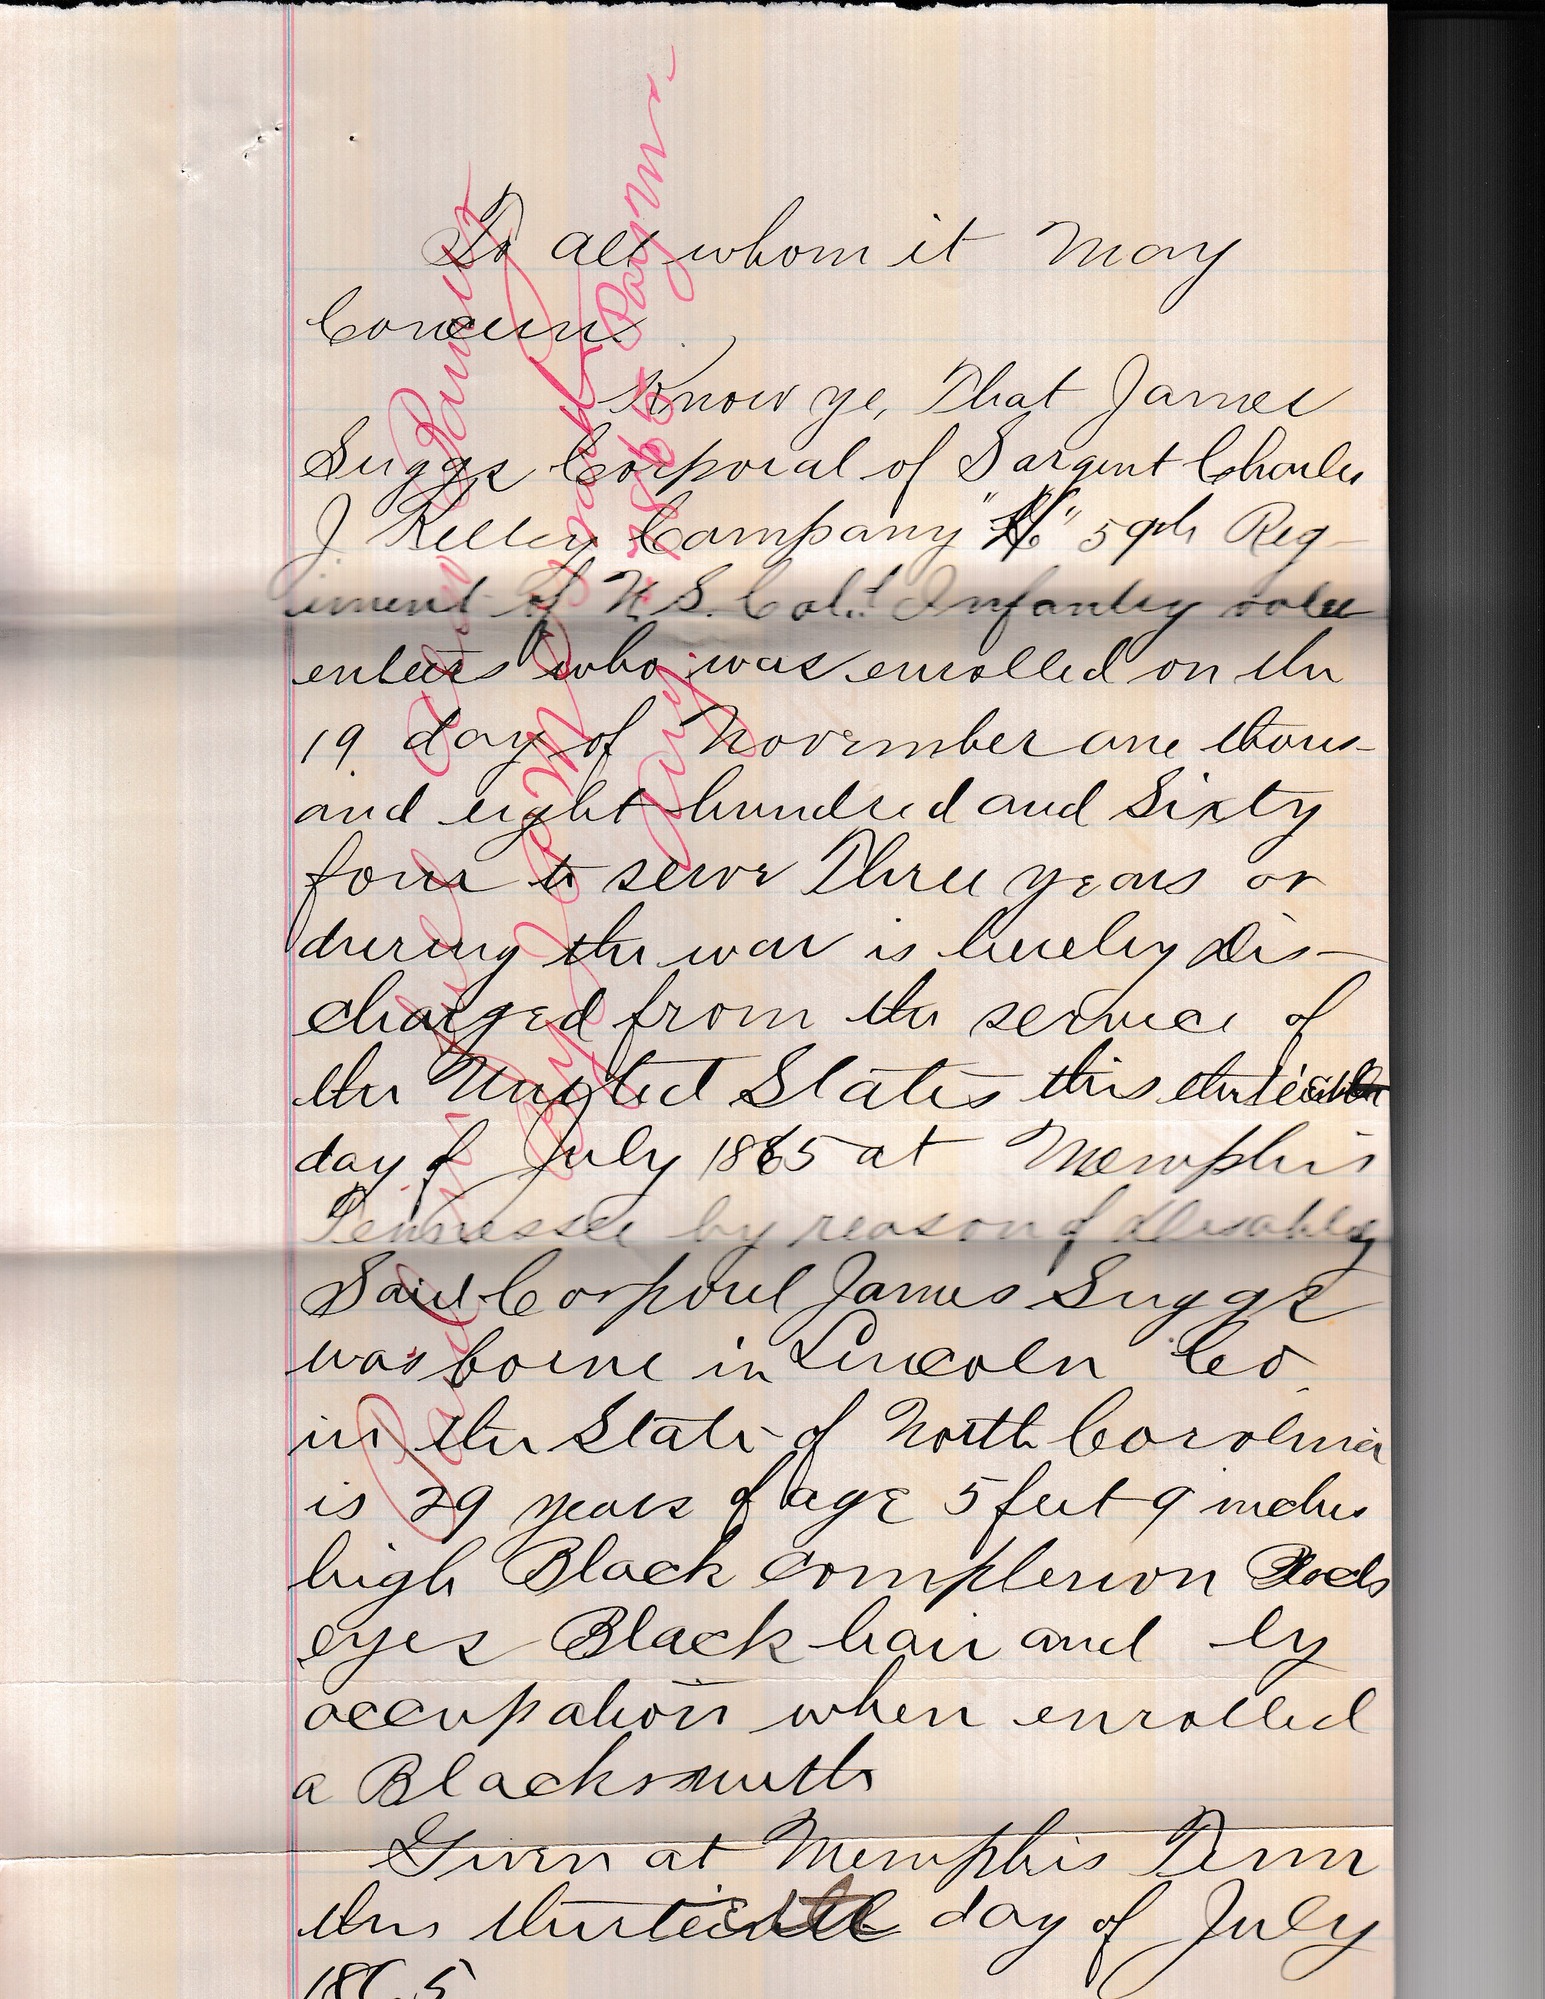 To all whom it May
Concern
Know ye, That James
Suggs Corporal of Sargent Charles
J Kelley Company "H" 59th Reg-
iment of U.S. Cold Infantry volu
enteers who was enrolled on the
19 day of November one thous-
and eight hundred and Sixty
four to serve Three years or
during the war is hereby dis-
charged from the service of
the United States this thirteenth
day of July 1865 at Memphis
Tennessee by reason of disability
Said Corporal James Suggs
was borne in Lincoln Co
in the State of North Carolina
is 29 years of age 5 feet 9 inches
high Black complexion
eyes Black hair and by
occupation when enrolled
a Blacksmith
Given at Memphis Tenn
this thirteenth day of July
1865
Paid in full
By
1865 Paym